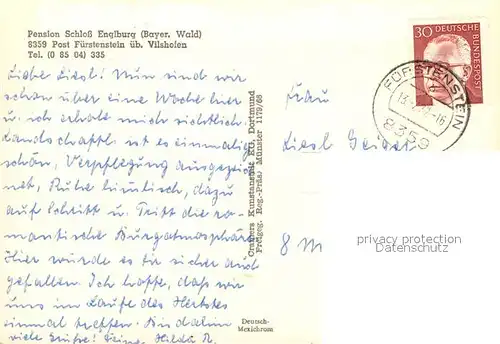 Pension Schloß Englburg (Bayer. Wald)
8359 Post Fürstenstein üb. Vilshofen
Tel. (0 85 04) 335
Liebe Liesl! Nun sind wir
schon über eine Woche hier
u. ich erhole mich sichtlich.
Landschaftl. ist es einmalig
schön, Verpflegung ausgezei-
net, Ruhe himmlisch, dazu
auf Schritt u. Tritt die ro-
mantische Burgatmosphäre.
Hier würde es dir sicher auch
gefallen. Ich hoffe, daß wir
uns im Laufe des Herbstes
einmal treffen. Bis dahin
viele Grüße! Deine Hilda R.
Cramers Kunstanstalt KG, Dortmund
Freigeg. Reg.-Präs. Münster 1179/66
Deutsch-
Mexichrom
30 DEUTSCHE BUNDESPOST
FÜRSTENSTEIN
8359
Frau
Liesl Geiger
8 M
privacy protection
Datenschutz